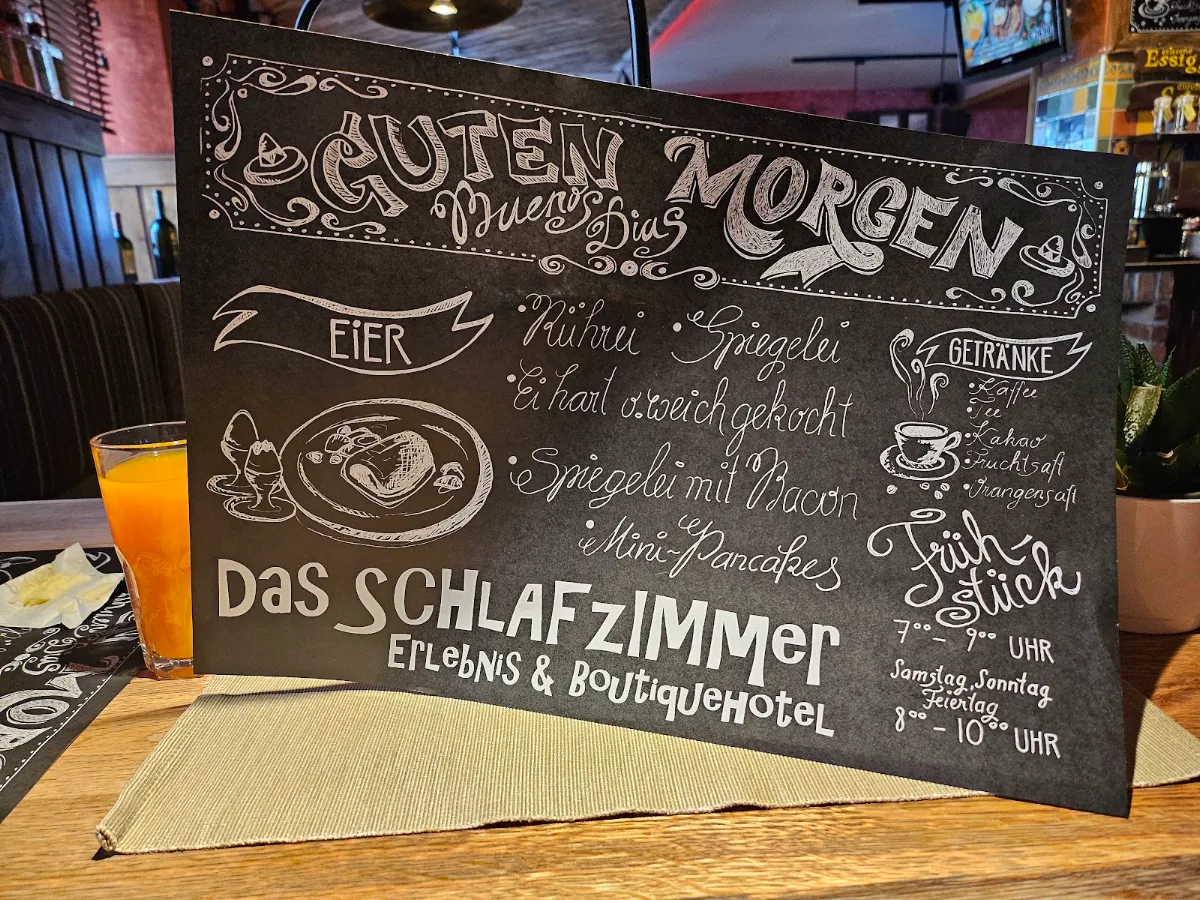 GUTEN MORGEN
Buenos Dias
EiER
• Rührei • Spiegelei
• Ei hart o. weich gekocht
• Spiegelei mit Bacon
• Mini-Pancakes
GETRÄNKE
• Kaffee
• Tee
• Kakao
• Fruchtsaft
• Orangensaft
Früh-
stück
7⁰⁰ - 9⁰⁰ UHR
Samstag, Sonntag
Feiertag
8⁰⁰ - 10⁰⁰ UHR
Das SCHLAFZIMMer
ErLebNiS & BoutiqueHoteL
Essig